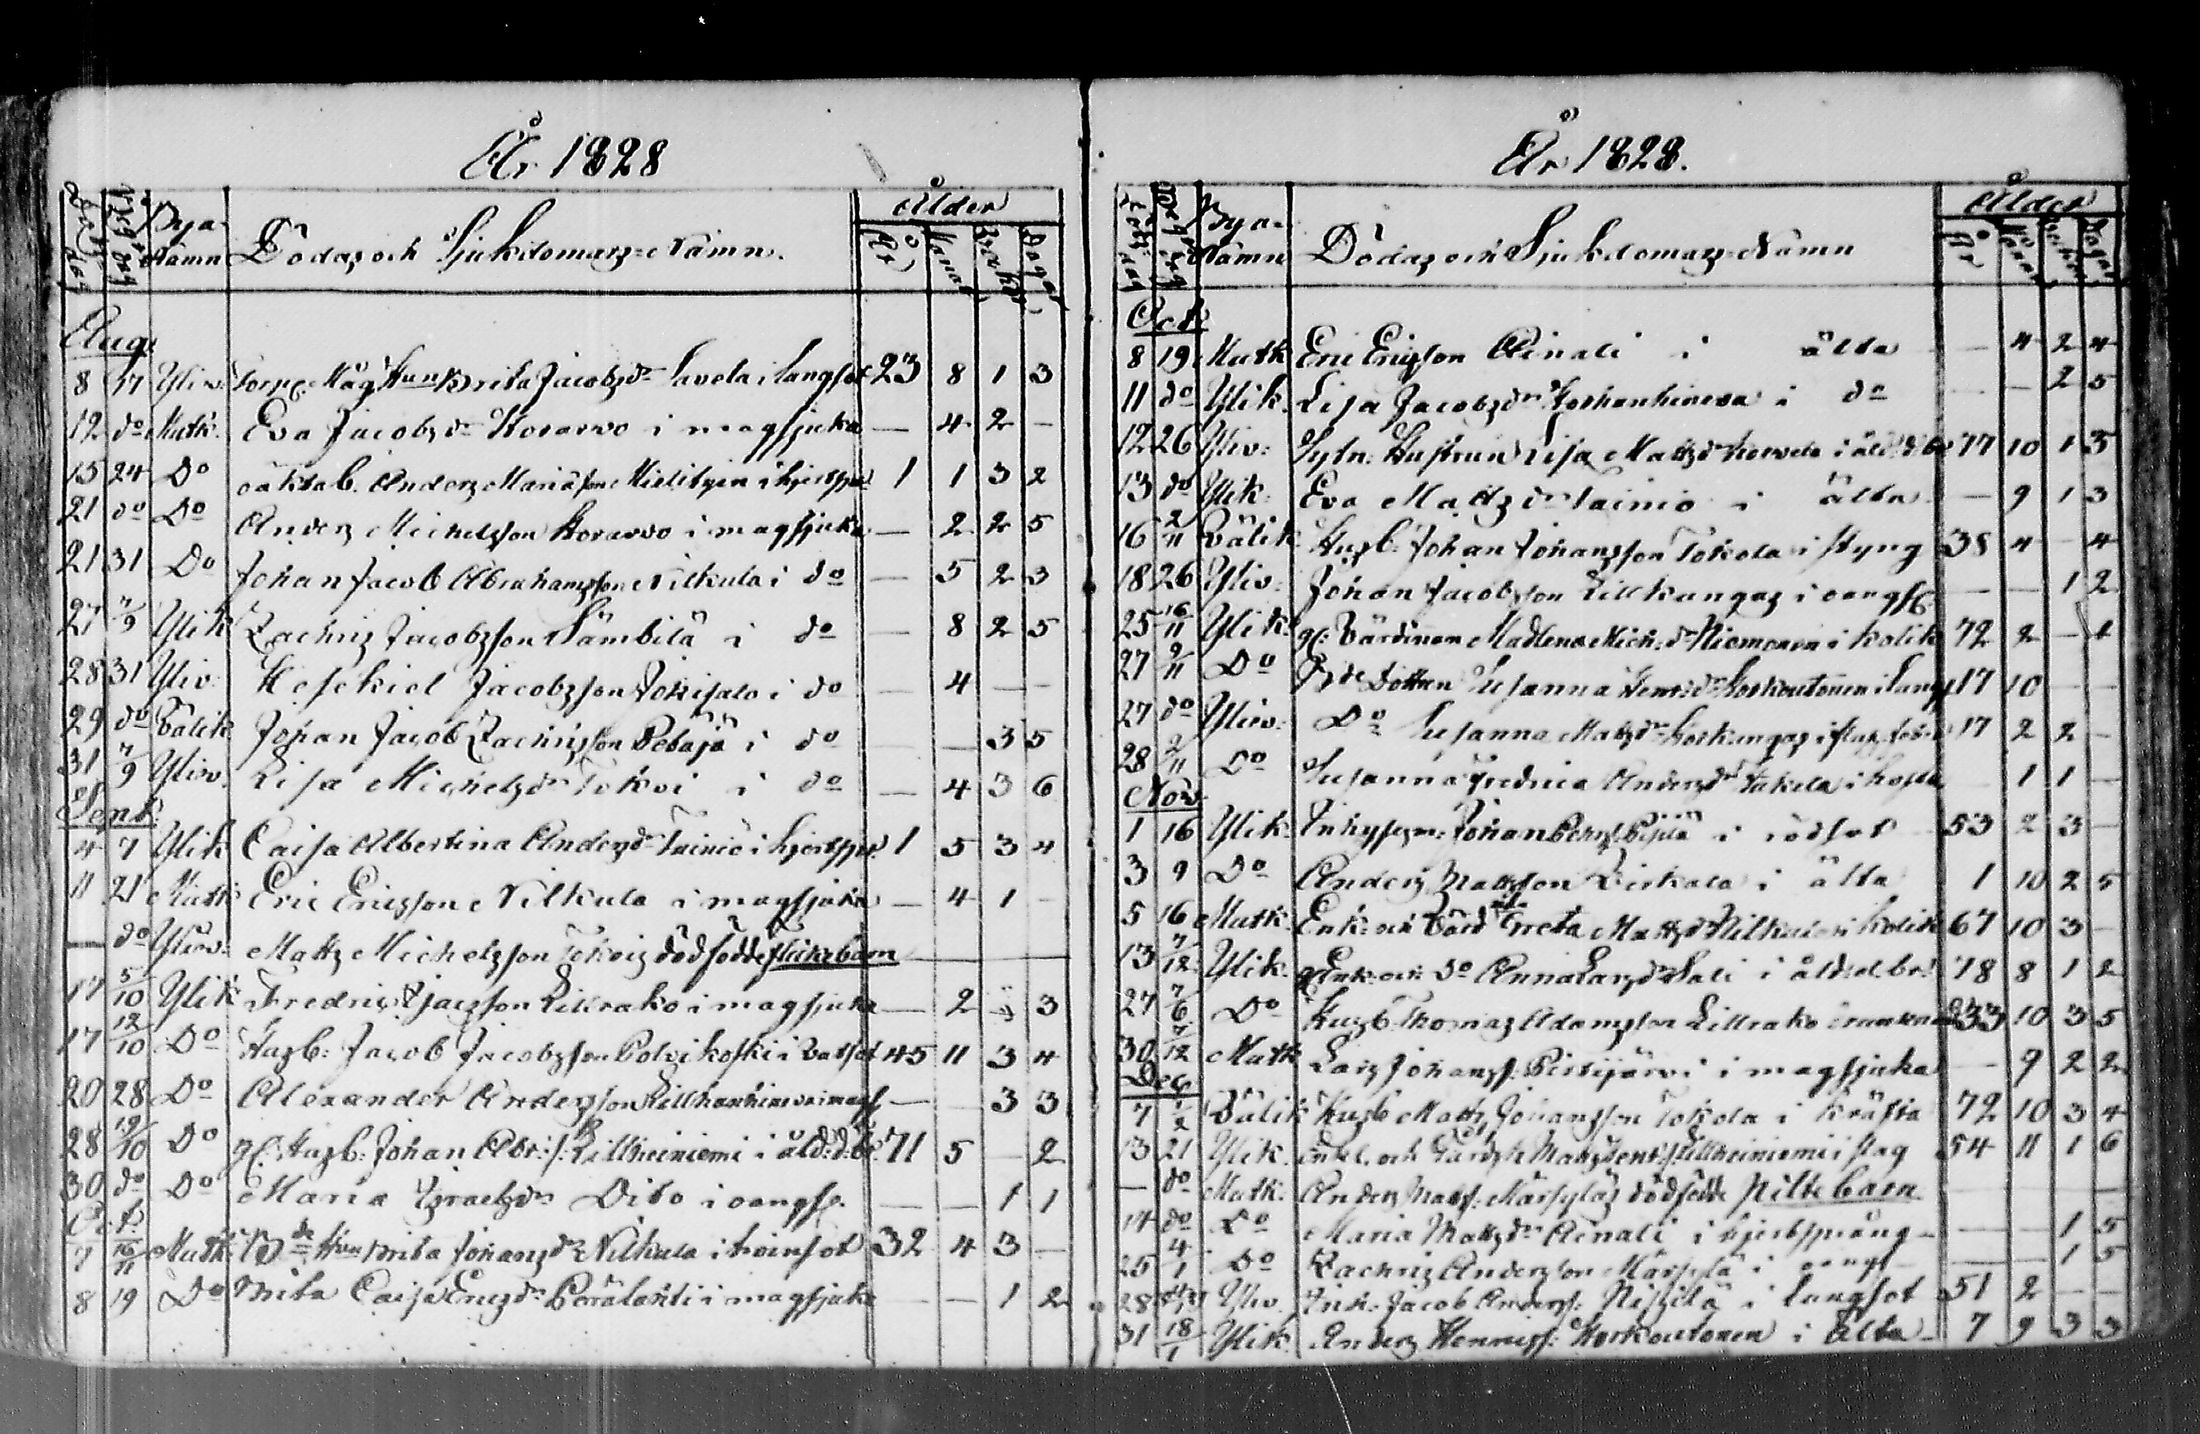 År 1828
Döds dag Begr: dag Bya-Namn Dödas och Sjukdomars Namn. Ålder År Månad Veckor Dagar
Aug:
8 17 Yliv: Torp. Måg Hun Brita Jacobsdr Savela i lungsot 23 8 1 3
12 do Matk. Eva Jacobsdr Korarvo i magsjuka — 4 2 —
15 24 Do oäkta b. Anders Mariason Mielityin i hjertspr: 1 1 3 2
21 do Do Anders Michelsson Korarvo i magsjuka — 2 2 5
21 31 Do Johan Jacob Abrahamsson Nilkula i do — 5 2 3
27 7/9 Ylik Zachris Jacobsson Sämbilä i do — 8 2 5
28 31 Yliv: Hesekiel Jacobsson Jokisalo i do — 4 — —
29 do Välik Johan Jacob Zachrisson Petäjä i do — — 3 5
31 7/9 Yliv. Lisa Michelsdr Tokoi i do — 4 3 6
Sept:
4 7 Ylik Caisa Albertina Andersdr Tainio i hjertspr: 1 5 3 4
11 21 Matk Eric Ericsson Nilkula i magsjuka — 4 1 —
— do Yliv: Matts Michelsson Tokois dödfödde flickebarn — — — —
17 5/10 Ylik Fredric Isacsson Lillrako i magsjuka — 2 3
17 12/10 Do Husb: Jacob Jacobsson Polvikoski i Vatsot 45 11 3 4
20 28 Do Alexander Andersson Lillhanhineva i mags — — 3 3
28 19/10 Do gl. Husb: Johan Abr:s: Lillheiniemi i åld:d:br: 71 5 — 2
30 do Do Maria Israelsdr Dito i oangfs. — — 1 1
Oct:
7 16/11 Matk: Bde Hun Brita Johansdr Nilkula i hvinsot 32 4 3 —
8 19 Do Brita Caisa Ericsdr Perälahti i magsjuka — — 1 2
År 1828.
Döds dag Begr: dag Bya-Namn Dödas och Sjukdomars Namn Ålder År Månad Veckor Dagar
Oct:
8 19 Matk Eric Ericsson Ainali i älta — 4 2 4
11 do Ylik. Lisa Jacobsdr Korhanhineva i do — — 2 5
12 26 Yliv: Sytn: Hustrun Lisa Mattsdr Korvela i åld:d:br 77 10 1 3
13 do Ylik: Eva Mattsdr Tainio i älta — 9 1 3
16 2/11 Välik Husb: Johan Johansson Tokola i styng 38 4 — 4
18 26 Yliv: Johan Jacobsson Lillkangas i oangfs. — — 1 2
25 16/11 Ylik: gl: Värdinnan Madlena Mich:dr Niemonen i kolik 72 2 —
27 2/11 Do Bde Dottren Susanna Henr:dr Korkoutonen i lungs 17 10 — —
27 do Yliv: Do Susanna Mattsdr Korkangas i 17 2 2 —
28 2/11 Do Susanna Fredrica Andersdr Takela i hosta 1 1 —
Nov
1 16 Ylik: Inhyses: Johan Pehrs: Pesilä i rödsot 53 2 3 —
3 9 Do Anders Mattsson Viskala i älta 1 10 2 5
5 16 Matk: Enk: och Värd:n Greta Mattsdr Nilkula i kolik 67 10 3 —
13 7/12 Ylik: gl Enk: och do Anna Larsdr Sali i åld:d:br: 78 8 1 2
27 7/6 Do Husb Thomas Adamsson Lillrako 33 10 3 5
30 7/12 Matk Lars Johans: Pirttijärvi i magsjuka — 9 2 2
Dec
7 1/2 Välik Husb Matts Johansson Tokola i kräfta 72 10 3 4
13 21 Ylik. Enkl. och Gårdsk Matts Henr:s: Lillheiniemi i slag 54 11 1 6
— do Matk: Anders Matss: Märsyläs dödfödde Piltebarn — — — —
14 do Do Maria Mattsdr Ainali i hjertspräng — — 1 5
25 4/1 Do Zachris Andersson Märsylä i oangf — — 1 5
28 Yliv Inh: Jacob Anders: Niskilä i lungsot 51 2 — —
31 18/1 Ylik Anders Henriss: Korkoutonen i älta 7 9 3 3